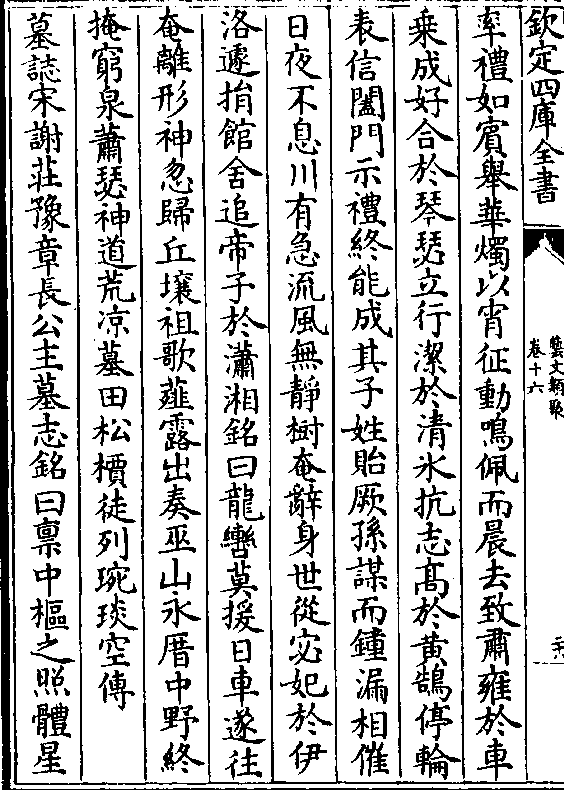 欽定四庫全書
藝文類聚
卷十六
率禮如賓舉華燭以宵征動鳴佩而晨去致肅雍於車
乗成好合於琴瑟立行潔於清氷抗志髙於黄鵠停輪
表信闔門示禮終能成其子姓貽厥孫謀而鍾漏相催
日夜不息川有急流風無靜樹奄辭身世從宓妃於伊
洛遽捐館舍追帝子於瀟湘銘曰龍轡莫援日車遂往
奄離形神忽歸丘壤祖歌薤露出奏巫山永厝中野終
掩窮泉蕭瑟神道荒凉墓田松檟徒列琬琰空傳
墓誌宋謝莊豫章長公主墓志銘曰禀中樞之照體星